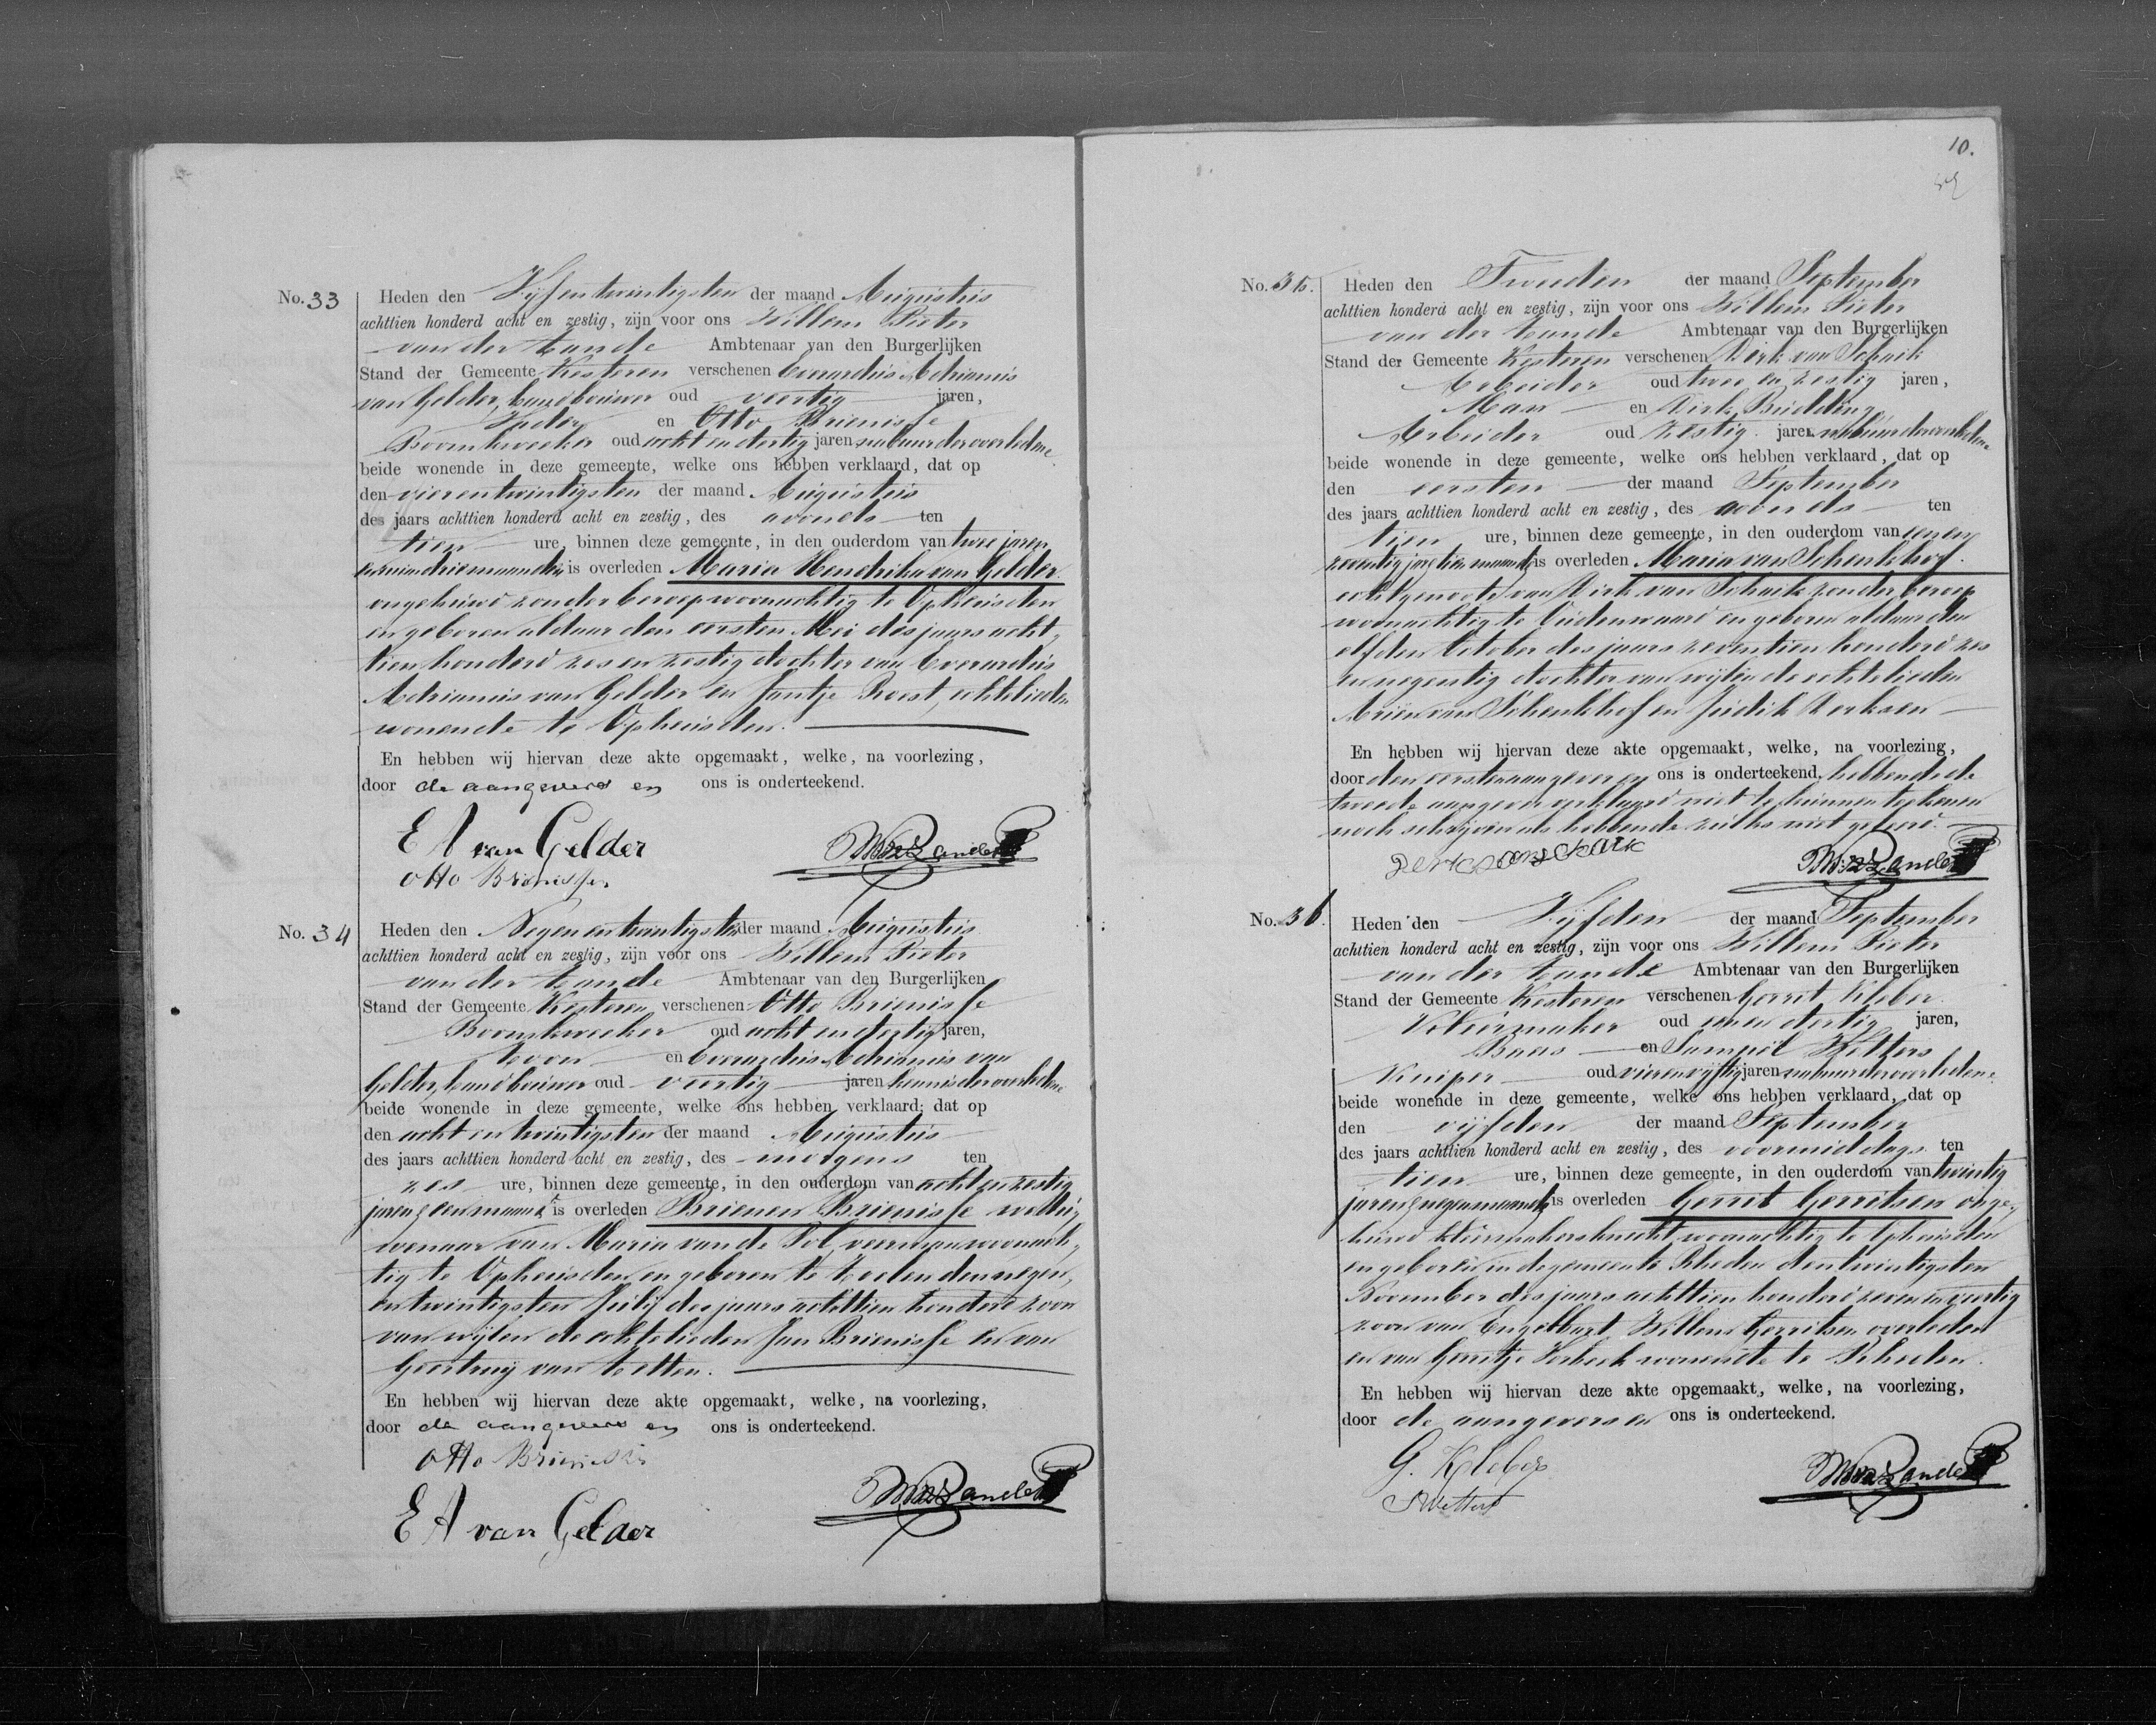 No. 33 Heden den Vijfentwintigsten der maand Augustus
achttien honderd acht en zestig, zijn voor ons Willem Pieter
van der Zande Ambtenaar van den Burgerlijken
Stand der Gemeente Kesteren verschenen Everardus Adrianus
van Gelder, landbouwer oud veertig jaren,
Vader en Otto Brienisse
Boomkweeker oud acht en dertig jaren nabuur der overledene
beide wonende in deze gemeente, welke ons hebben verklaard, dat op
den vierentwintigsten der maand Augustus
des jaars achttien honderd acht en zestig, des avonds ten
tien ure, binnen deze gemeente, in den ouderdom van twee jaren
en ruim drie maanden is overleden Maria Hendrika van Gelder
ongehuwd zonder beroep woonachtig te Opheusden
en geboren aldaar den eersten Mei des jaars acht,
tien honderd zes en zestig dochter van Everardus
Adrianus van Gelder en Jantje Roest, echtelieden
wonende te Opheusden.
En hebben wij hiervan deze akte opgemaakt, welke, na voorlezing,
door de aangevers en ons is onderteekend.
E A van Gelder
Otto Brienisse
No. 34 Heden den Negen en twintigsten der maand Augustus
achttien honderd acht en zestig, zijn voor ons Willem Pieter
van der Zande Ambtenaar van den Burgerlijken
Stand der Gemeente Kesteren verschenen Otto Brienisse
Boomkweeker oud acht en dertig jaren,
Zoon en Everardus Adrianus van
Gelder, landbouwer oud veertig jaren kennis der overledene
beide wonende in deze gemeente, welke ons hebben verklaard, dat op
den acht en twintigsten der maand Augustus
des jaars achttien honderd acht en zestig, des morgens ten
zes ure, binnen deze gemeente, in den ouderdom van acht en zestig
jaren & een maand is overleden Brienen Brienisse weduw,
wenaar van Maria van de Pol, veerman woonach,
tig te Opheusden en geboren te den negen,
en twintigsten Julij des jaars achttien honderd zoon
van wijlen de echtelieden Jan Brienisse en van
Geertruij van
En hebben wij hiervan deze akte opgemaakt, welke, na voorlezing,
door de aangevers en ons is onderteekend.
Otto Brienisse
E A van Gelder
10.
No. 35. Heden den Tweeden der maand September
achttien honderd acht en zestig, zijn voor ons Willem Pieter
van der Zande Ambtenaar van den Burgerlijken
Stand der Gemeente Kesteren verschenen Dirk van Schaik
Arbeider oud twee en zestig jaren,
Man en Dirk Budding
Arbeider oud zestig jaren nabuur der overledene
beide wonende in deze gemeente, welke ons hebben verklaard, dat op
den eersten der maand September
des jaars achttien honderd acht en zestig, des avonds ten
tien ure, binnen deze gemeente, in den ouderdom van eenen
zeventig jaren tien maanden is overleden Maria van Schenkhof.
echtgenoote van Dirk van Schaik zonder beroep
woonachtig te Oudenwaard en geboren aldaar den
elfden October des jaars zeventien honderd zes
en negentig dochter van wijlen de echtelieden
Arien van Schenkhof en Judik Derksen
En hebben wij hiervan deze akte opgemaakt, welke, na voorlezing,
door den eersten aangever en ons is onderteekend, hebbende de
tweede aangever verklaard niet te kunnen teekenen
noch schrijven als hebbende zulks niet geleerd.
No. 36. Heden den Vijfden der maand September
achttien honderd acht en zestig, zijn voor ons Willem Pieter
van der Zande Ambtenaar van den Burgerlijken
Stand der Gemeente Kesteren verschenen Gerrit Kleber.
Kleermaker oud eenen dertig jaren,
Baas en Sampil Wetters
Kuiper oud vierenvijftig jaren nabuur der overledene
beide wonende in deze gemeente, welke ons hebben verklaard, dat op
den vijfden der maand September
des jaars achttien honderd acht en zestig, des voormiddags ten
tien ure, binnen deze gemeente, in den ouderdom van twintig
jaren & negen maanden is overleden Gerrit Gerritsen onge,
huwd kleermakersknecht woonachtig te Opheusden
en geboren in de gemeente Rheden den twintigsten
November des jaars achttien honderd zeven en veertig
zoon van Engelbart Willem Gerritsen overleden
en van Gerritje Verbeek wonende te Rheden.
En hebben wij hiervan deze akte opgemaakt, welke, na voorlezing,
door de aangevers en ons is onderteekend.
G. Kleber
S Wetters